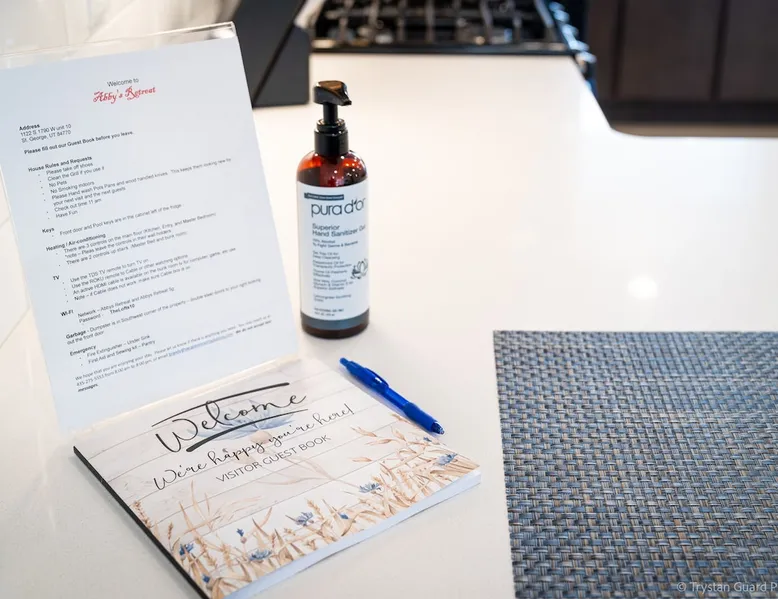 Welcome to
Abby's Retreat
Address
1122 S 1790 W unit 10
St. George, UT 84770
Please fill out our Guest Book before you leave.
House Rules and Requests
Please take off shoes
Clean the Grill if you use it
No Pets
No Smoking indoors
Please Hand wash Pots Pans and wood handled knives. This keeps them looking new for
your next visit and the next guests
Check out time 11 am
Have Fun
Keys
Front door and Pool keys are in the cabinet left of the fridge
Heating / Air-conditioning
There are 3 controls on the main floor (Kitchen, Entry, and Master Bedroom)
*note - Please leave the controls in their wall holders
There are 2 controls up stairs
TV
Use the TDS TV remote to turn TV on
Use the ROKU remote to Cable or other watching options
An active HDMI cable is available
Note - if Cable does not work make sure Cable box is on
Wi-Fi
Network - Abbys Retreat and Abbys Retreat 5g
Password - TheLofts10
Garbage - Dumpster is in Southwest corner of the property - double steel doors to your right looking
out the front door
Emergency
Fire Extinguisher - Under Sink
First Aid and Sewing kit - Pantry
We hope that you are enjoying your stay. Please let us know if there is anything you need.
messages.
pura d'or
Superior
Hand Sanitizer Gel
70% Alcohol
Welcome
We're happy you're here!
VISITOR GUEST BOOK
© Trystan Guard P